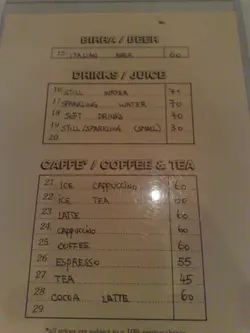 BIRRA / BEER
15 ITALIAN BEER 60
DRINKS / JUICE
16 STILL WATER 70
17 SPARKLING WATER 70
18 SOFT DRINKS 40
19 STILL/SPARKLING (SMALL) 30
20
CAFFE' / COFFEE & TEA
21. ICE CAPPUCCINO 60
22. ICE TEA 60
23. LATTE 60
24. CAPPUCCINO 60
25. COFFEE 60
26. ESPRESSO 55
27. TEA 45
28 COCOA LATTE 60
29